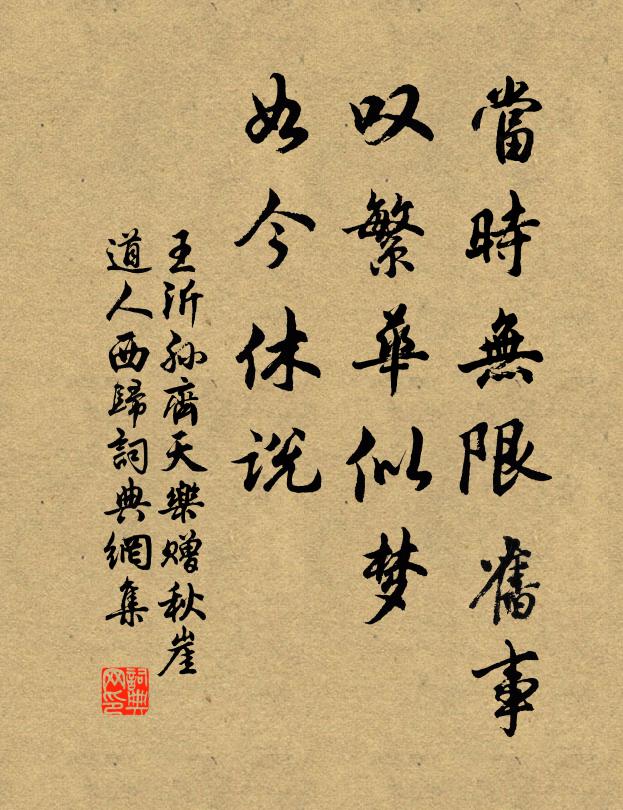 當時無限舊事
叹繁華似梦
如今休説
王沂孙齊天樂赠秋崖
道人西歸詞典網集
詞典网印